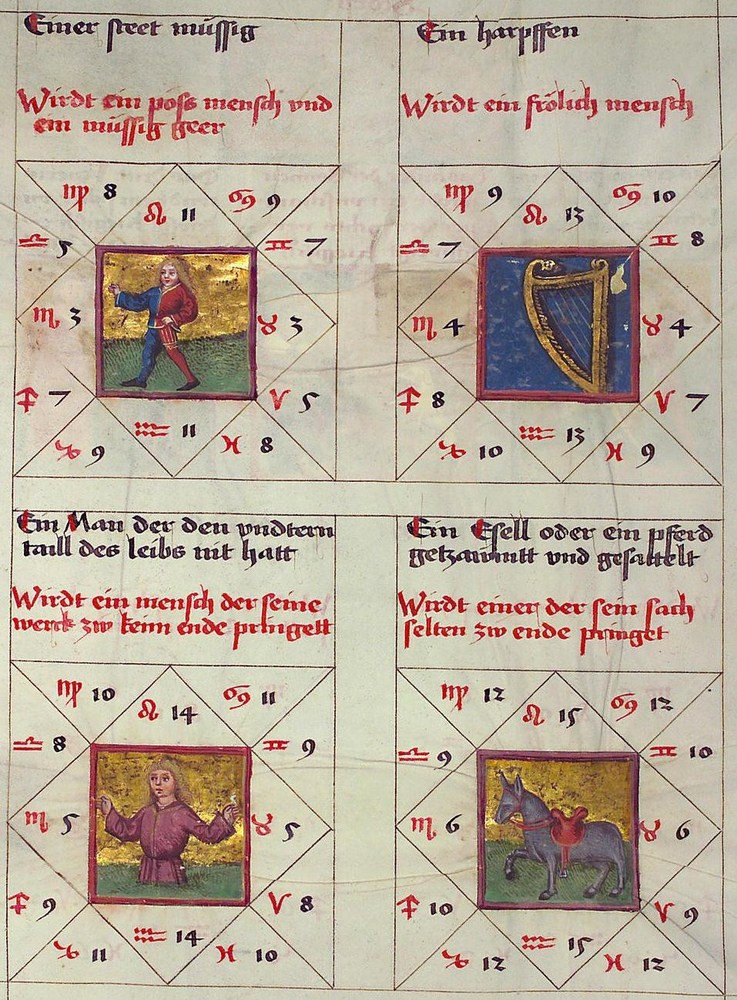 Einer steet müssig
Wirdt ein poss mensch vnd
ein müssig geer
♍ 8
♌ 11
♋ 9
♎ 5
♊ 7
♏ 3
♉ 3
♐ 7
♈ 5
♑ 9
♒ 11
♓ 8
Ein harpffen
Wirdt ein frölich mensch
♍ 9
♌ 13
♋ 10
♎ 7
♊ 8
♏ 4
♉ 4
♐ 8
♈ 7
♑ 10
♒ 13
♓ 9
Ein Man der den vndtern
taill des leibs nit hatt
Wirdt ein mensch der seine
werck zw kein ende pringett
♍ 10
♌ 14
♋ 11
♎ 8
♊ 9
♏ 5
♉ 5
♐ 9
♈ 8
♑ 11
♒ 14
♓ 10
Ein Esell oder ein pferd
getzaumtt vnd gesattelt
Wirdt einer der sein sach
selten zw ende pringet
♍ 12
♌ 15
♋ 12
♎ 9
♊ 10
♏ 6
♉ 6
♐ 10
♈ 9
♑ 12
♒ 15
♓ 12